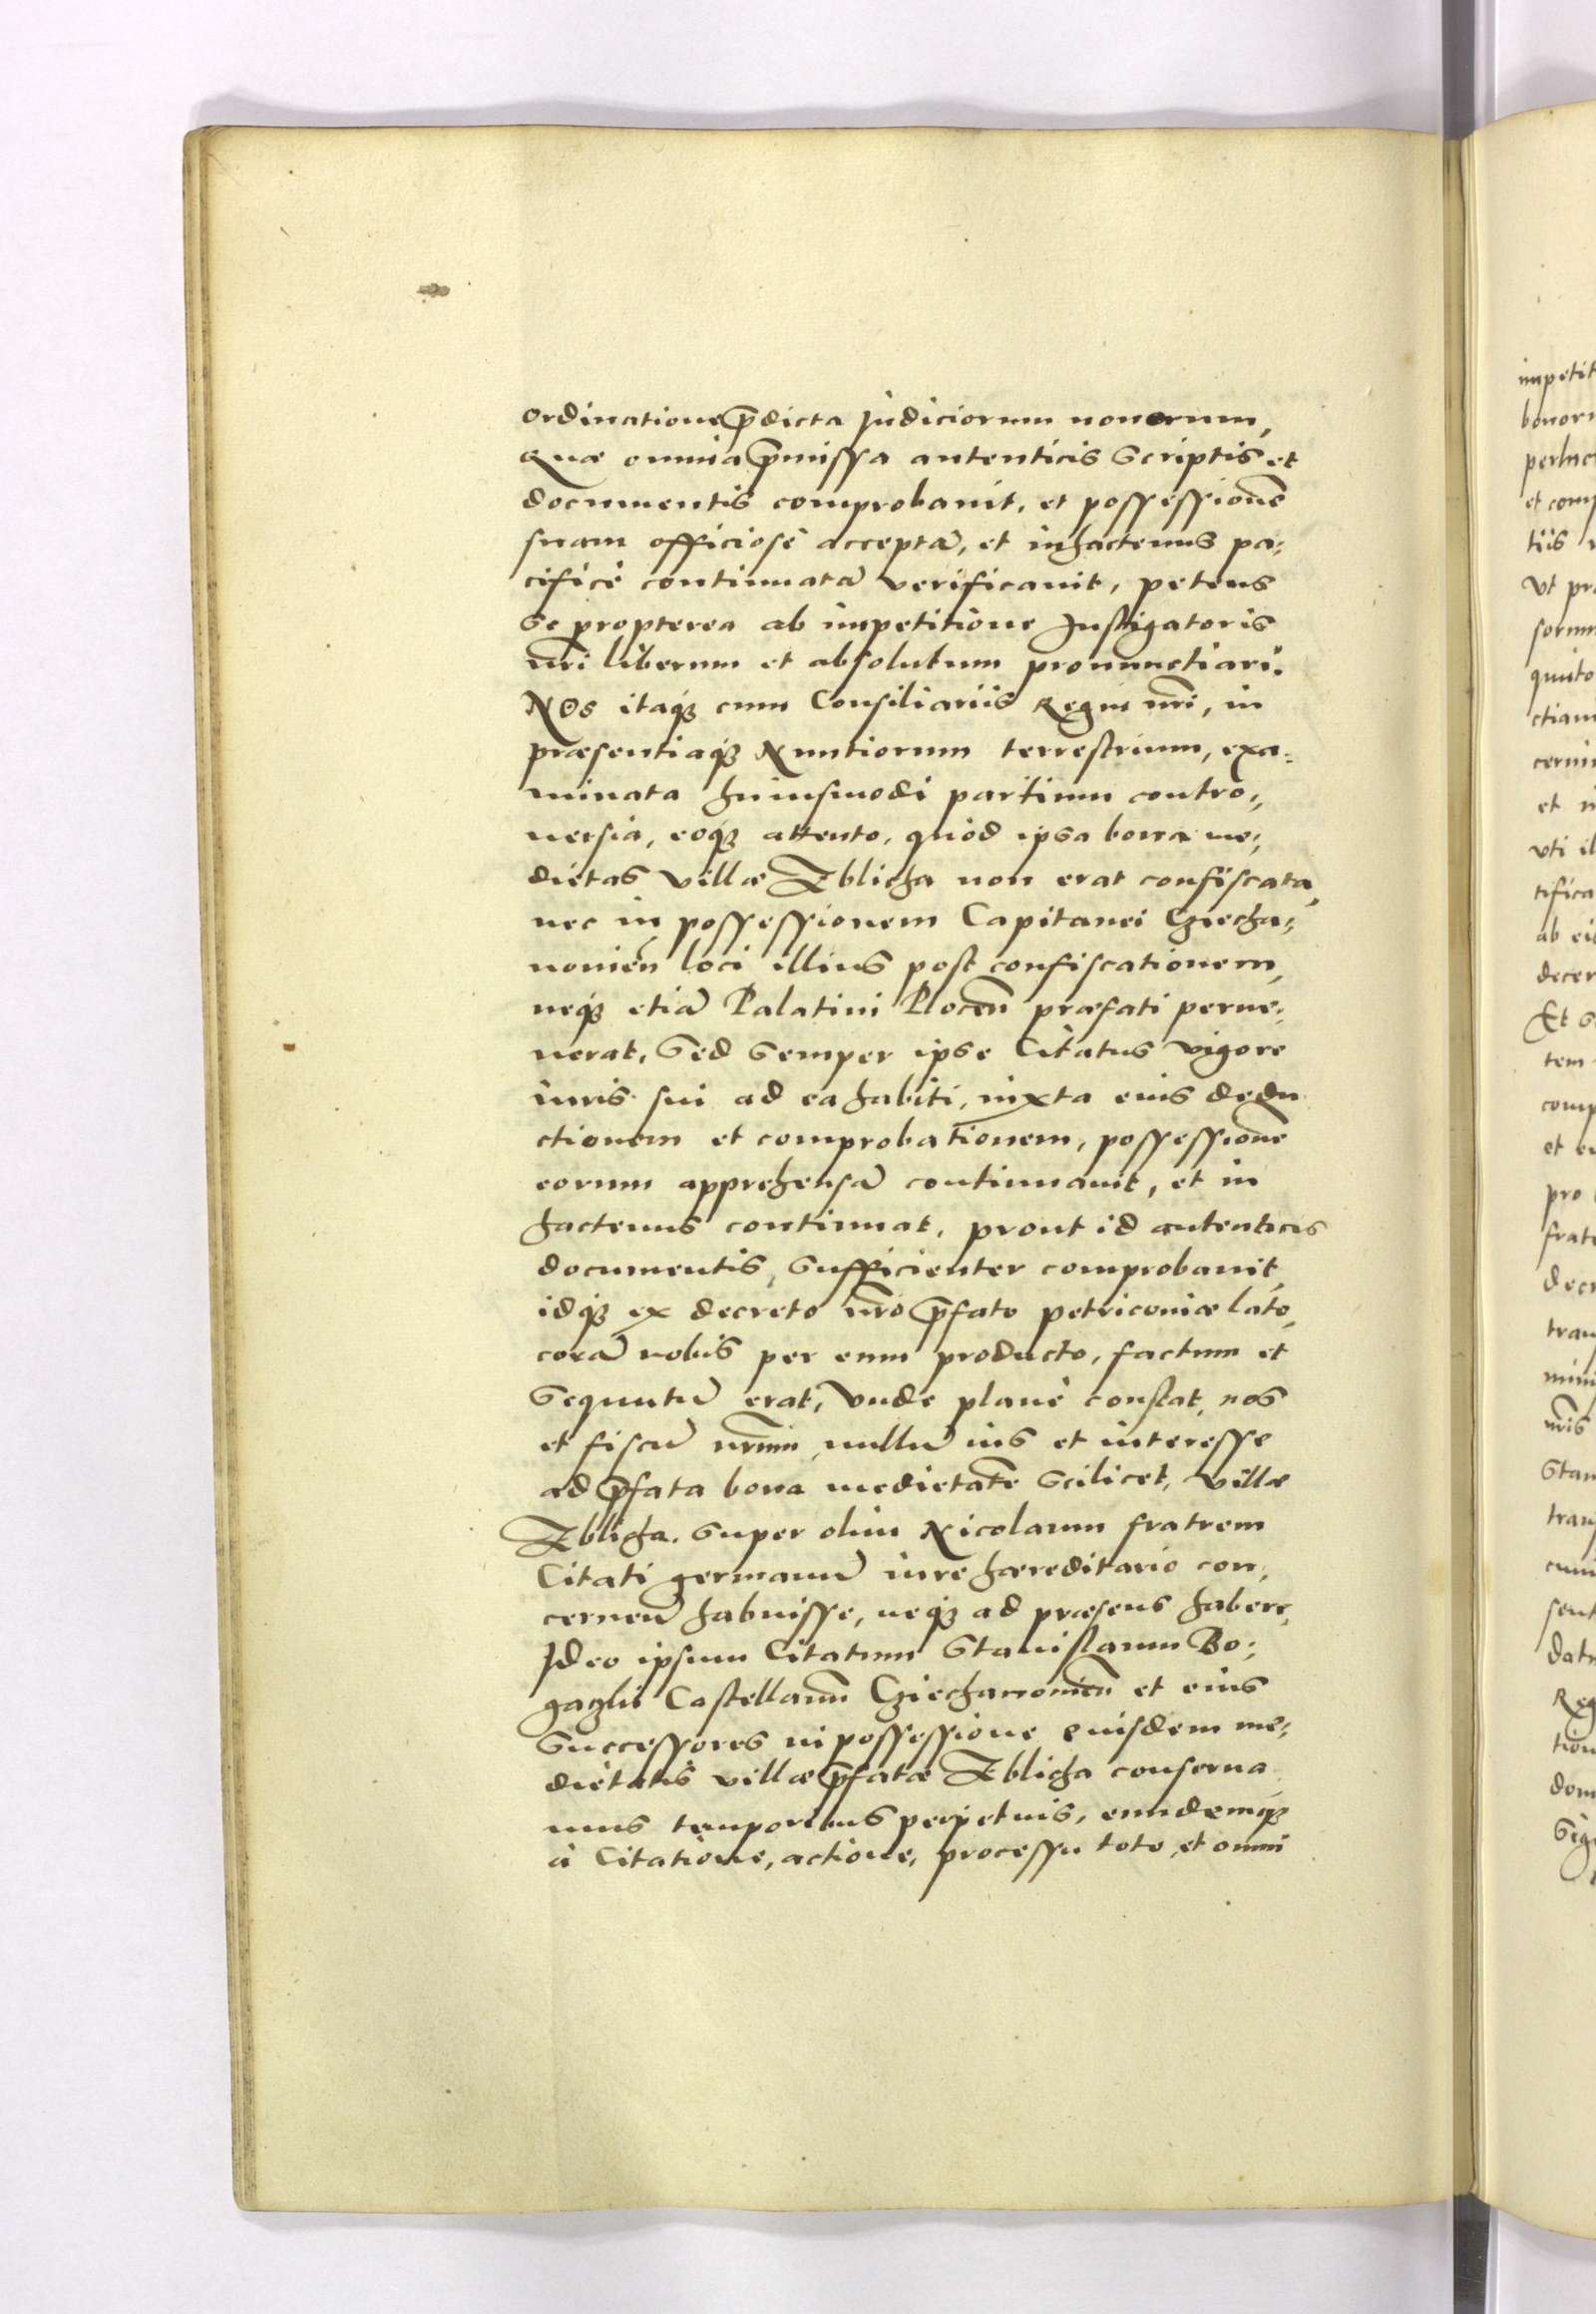 ordinatione p̄dicta Judiciorum nouorum,
Quæ omnia p̄missa autenticis scriptis et
documentis comprobauit, et possessionē
suam officiosè acceptā, et inhactenus pa-
cificè continuatā verificauit, petens
se propterea ab impetitione Instigatoris
nr̄i liberum et absolutum pronunctiari.
NOs itaq₃ cum Consiliariis Regni nr̄i, in
præsentiaq₃ Nuntiorum terrestrium, exa-
minata huiusmodi partium contro-
uersia, eoq₃ attento, quòd ipsa bona me-
dietas villæ Zblicha non erat confiscata,
nec in possessionem Capitanei Cziecha-
nouien̄ loci illius post confiscationem,
neq₃ etiā Palatini Plocen̄ præfati perue-
nerat, sed semper ipse Citatus vigore
iuris sui ad ea habiti, iuxta eius dedu
ctionem et comprobationem, possessionē
eorum apprehensā continuauit, et in
hactenus continuat, prout id autenticis
documentis, sufficienter comprobauit,
idq₃ ex decreto nr̄o p̄fato petricouiæ lato,
corā nobis per eum producto, factum et
sequutū erat, Vnde planè constat, nos
et fiscū nr̄um, nullū ius et interesse
ad p̄fata bona medietatē scilicet, villæ
Zblicha. super olim Nicolaum fratrem
Citati germanū iure hæreditario con-
cernen̄ habuisse, neq₃ ad præsens habere,
Ideo ipsum Citatum Stanislaum Bo-
Castellanū Cziechanouien̄ et eius
successores in possessione eiusdem me-
dietatis villæ p̄fatæ Zblicha conserua
mus temporibus perpetuis, eundemq₃
à Citatione, actione, processu toto, et omni
impetit
et com
tiis
Vt pr
ctiam
et
ab
decer
Et s
tem
comp
pro
frat
tran
Stan
tran
sent
Reg
tion
dom